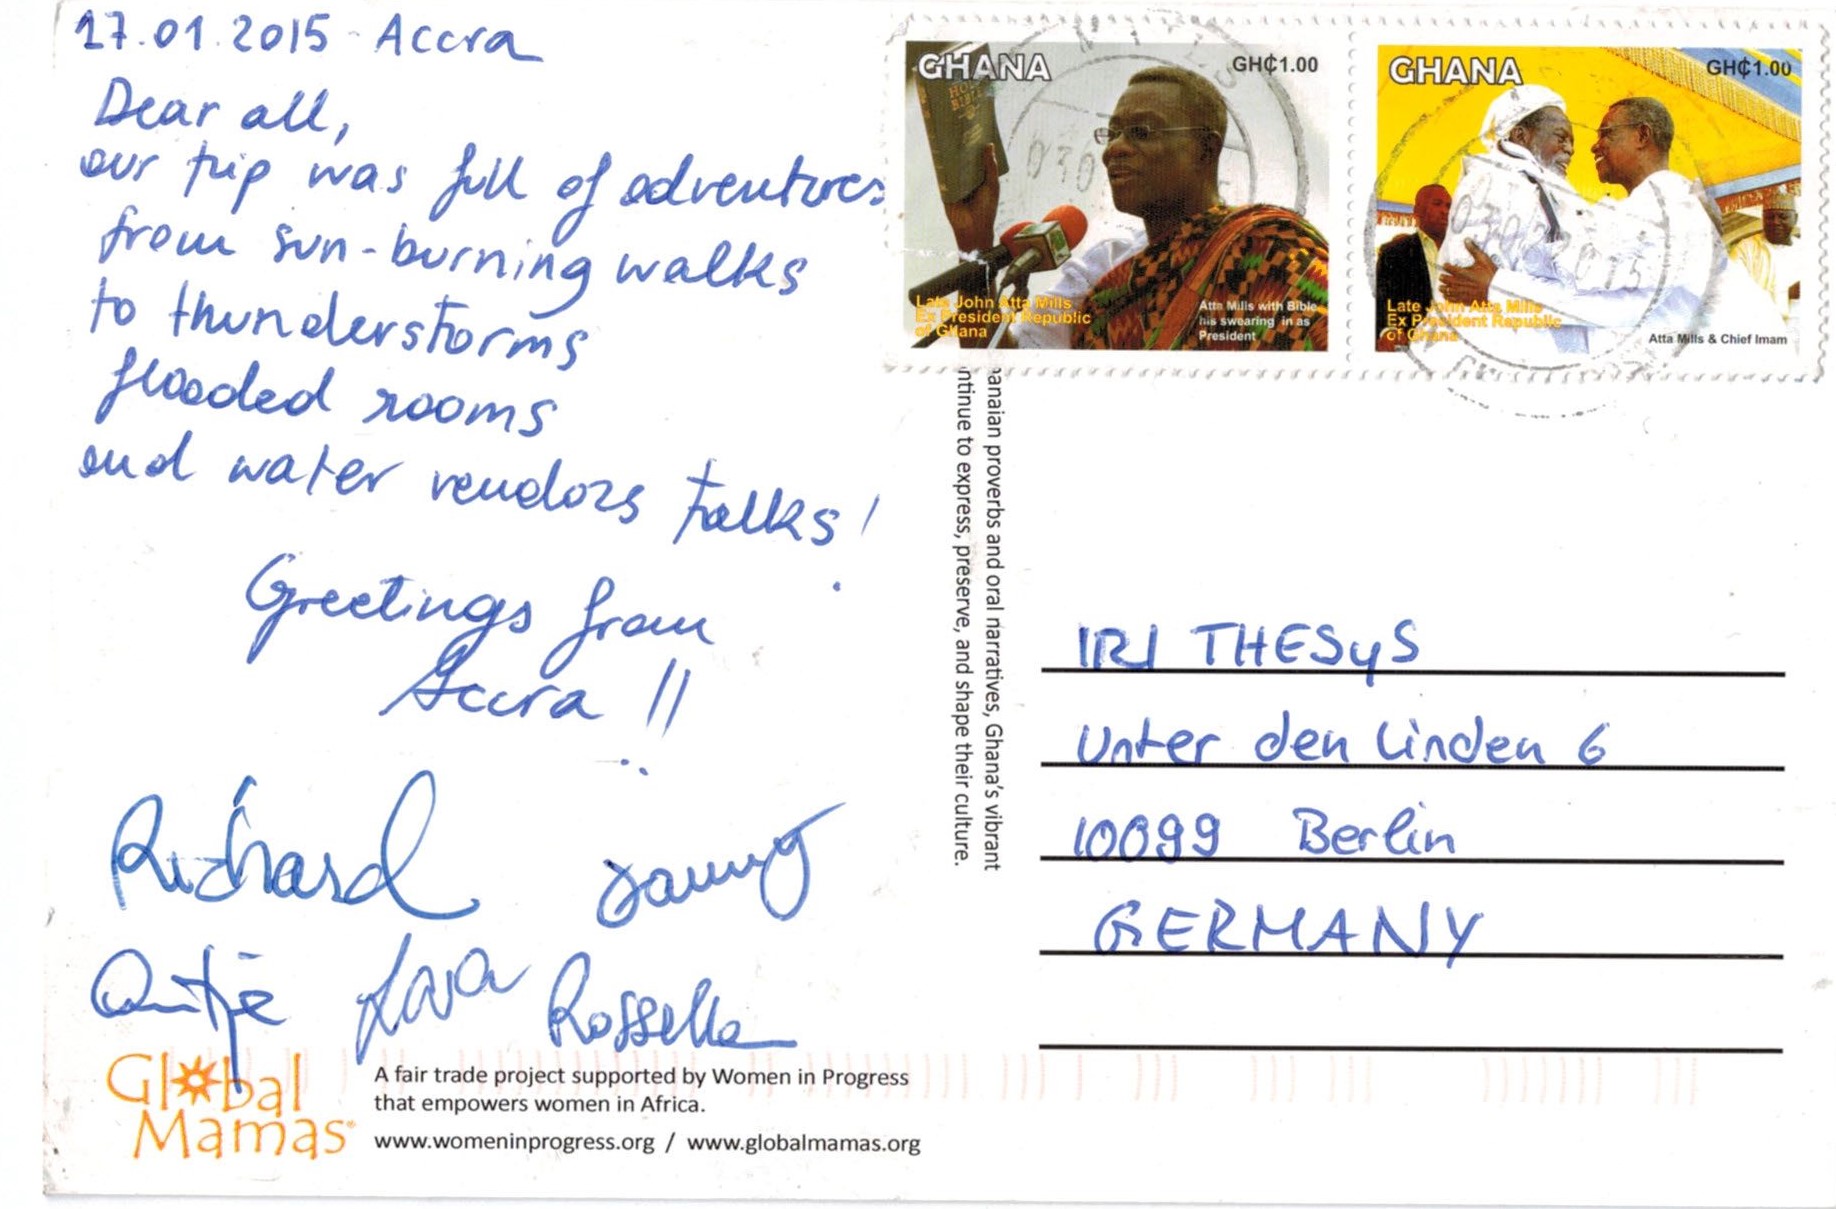 17.01.2015 - Accra
Dear all,
our trip was full of adventures
from sun-burning walks
to thunderstorms
flooded rooms
and water vendors talks!
Greetings from
Accra !!
Richard Jenny
Antje Lara Rossella
Global
Mamas
A fair trade project supported by Women in Progress
that empowers women in Africa.
www.womeninprogress.org / www.globalmamas.org
GHANA GH₵1.00
HOLY
BIBLE
Late John Atta Mills
Ex President Republic
of Ghana
Atta Mills with Bible
his swearing in as
President
GHANA GH₵1.00
Late John Atta Mills
Ex President Republic
of Ghana
Atta Mills & Chief Imam
anaian proverbs and oral narratives, Ghana's vibrant
ntinue to express, preserve, and shape their culture.
IRI THESyS
Unter den Linden 6
10099 Berlin
GERMANY